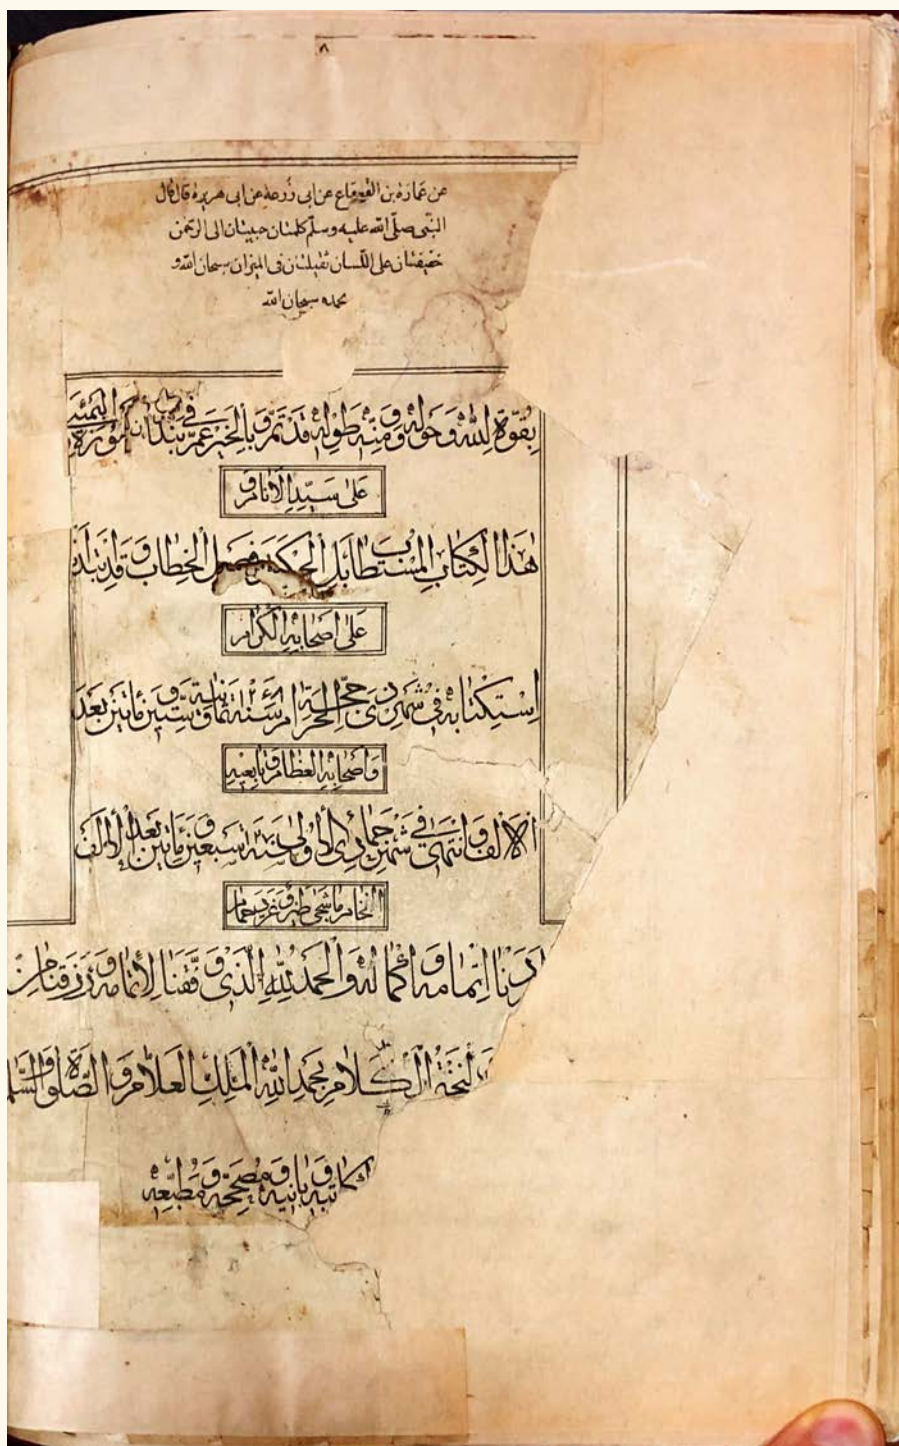 ٨
عن عمارة بن القعقاع عن ابى زرعة عن ابى هريرة قال قال
النبى صلى الله عليه وسلم كلمتان حبيبتان الى الرحمن
خفيفتان على اللسان ثقيلتان فى الميزان سبحان الله و
بحمده سبحان الله
بِقُوَّةِ اللهِ وَحَوْلِهِ وَمِنِّهِ وَطَوْلِهِ قَدْ تَمَّ بِالْخَيْرِ فِي بَنْدَرِ
عَلٰى سَيِّدِ الْاَنَامِ وَ
هٰذَا الْكِتَابُ الْمُسْتَطَابُ بَلِ الْحِكْمَةُ وَفَصْلُ الْخِطَابِ وَقَدِ ابْتَدَأَ
عَلٰى اَصْحَابِهِ الْكِرَامِ
اِسْتِكْتَابُهُ فِيْ شَهْرِ ذِى حِجَّةِ الْحَرَامِ سَنَةَ ١٢٦٨ ثَمَانِيَةٍ وَسِتِّيْنَ وَمِأَتَيْنِ بَعْدَ
وَاَصْحَابِهِ الْعِظَامِ وَتَابِعِيْهِ
الْاَلْفِ وَانْتَهٰى فِيْ شَهْرِ جُمَادِى الْاُوْلٰى سَنَةَ سَبْعِيْنَ وَمِأَتَيْنِ بَعْدَ الْاَلْفِ
اِتْمَامَهُ وَاِكْمَالَهُ وَالْحَمْدُ لِلّٰهِ الَّذِىْ وَفَّقَنَا لِاِتْمَامِهِ وَرَزَقَنَا مِنْ
الْكَلَامِ بِحَمْدِ اللهِ الْمَلِكِ الْعَلَّامِ وَالصَّلٰوةُ وَالسَّلَا
كَاتِبِهِ وَبَانِيْهِ وَمُصَحِّحِهِ وَمُطَبِّعِهِ